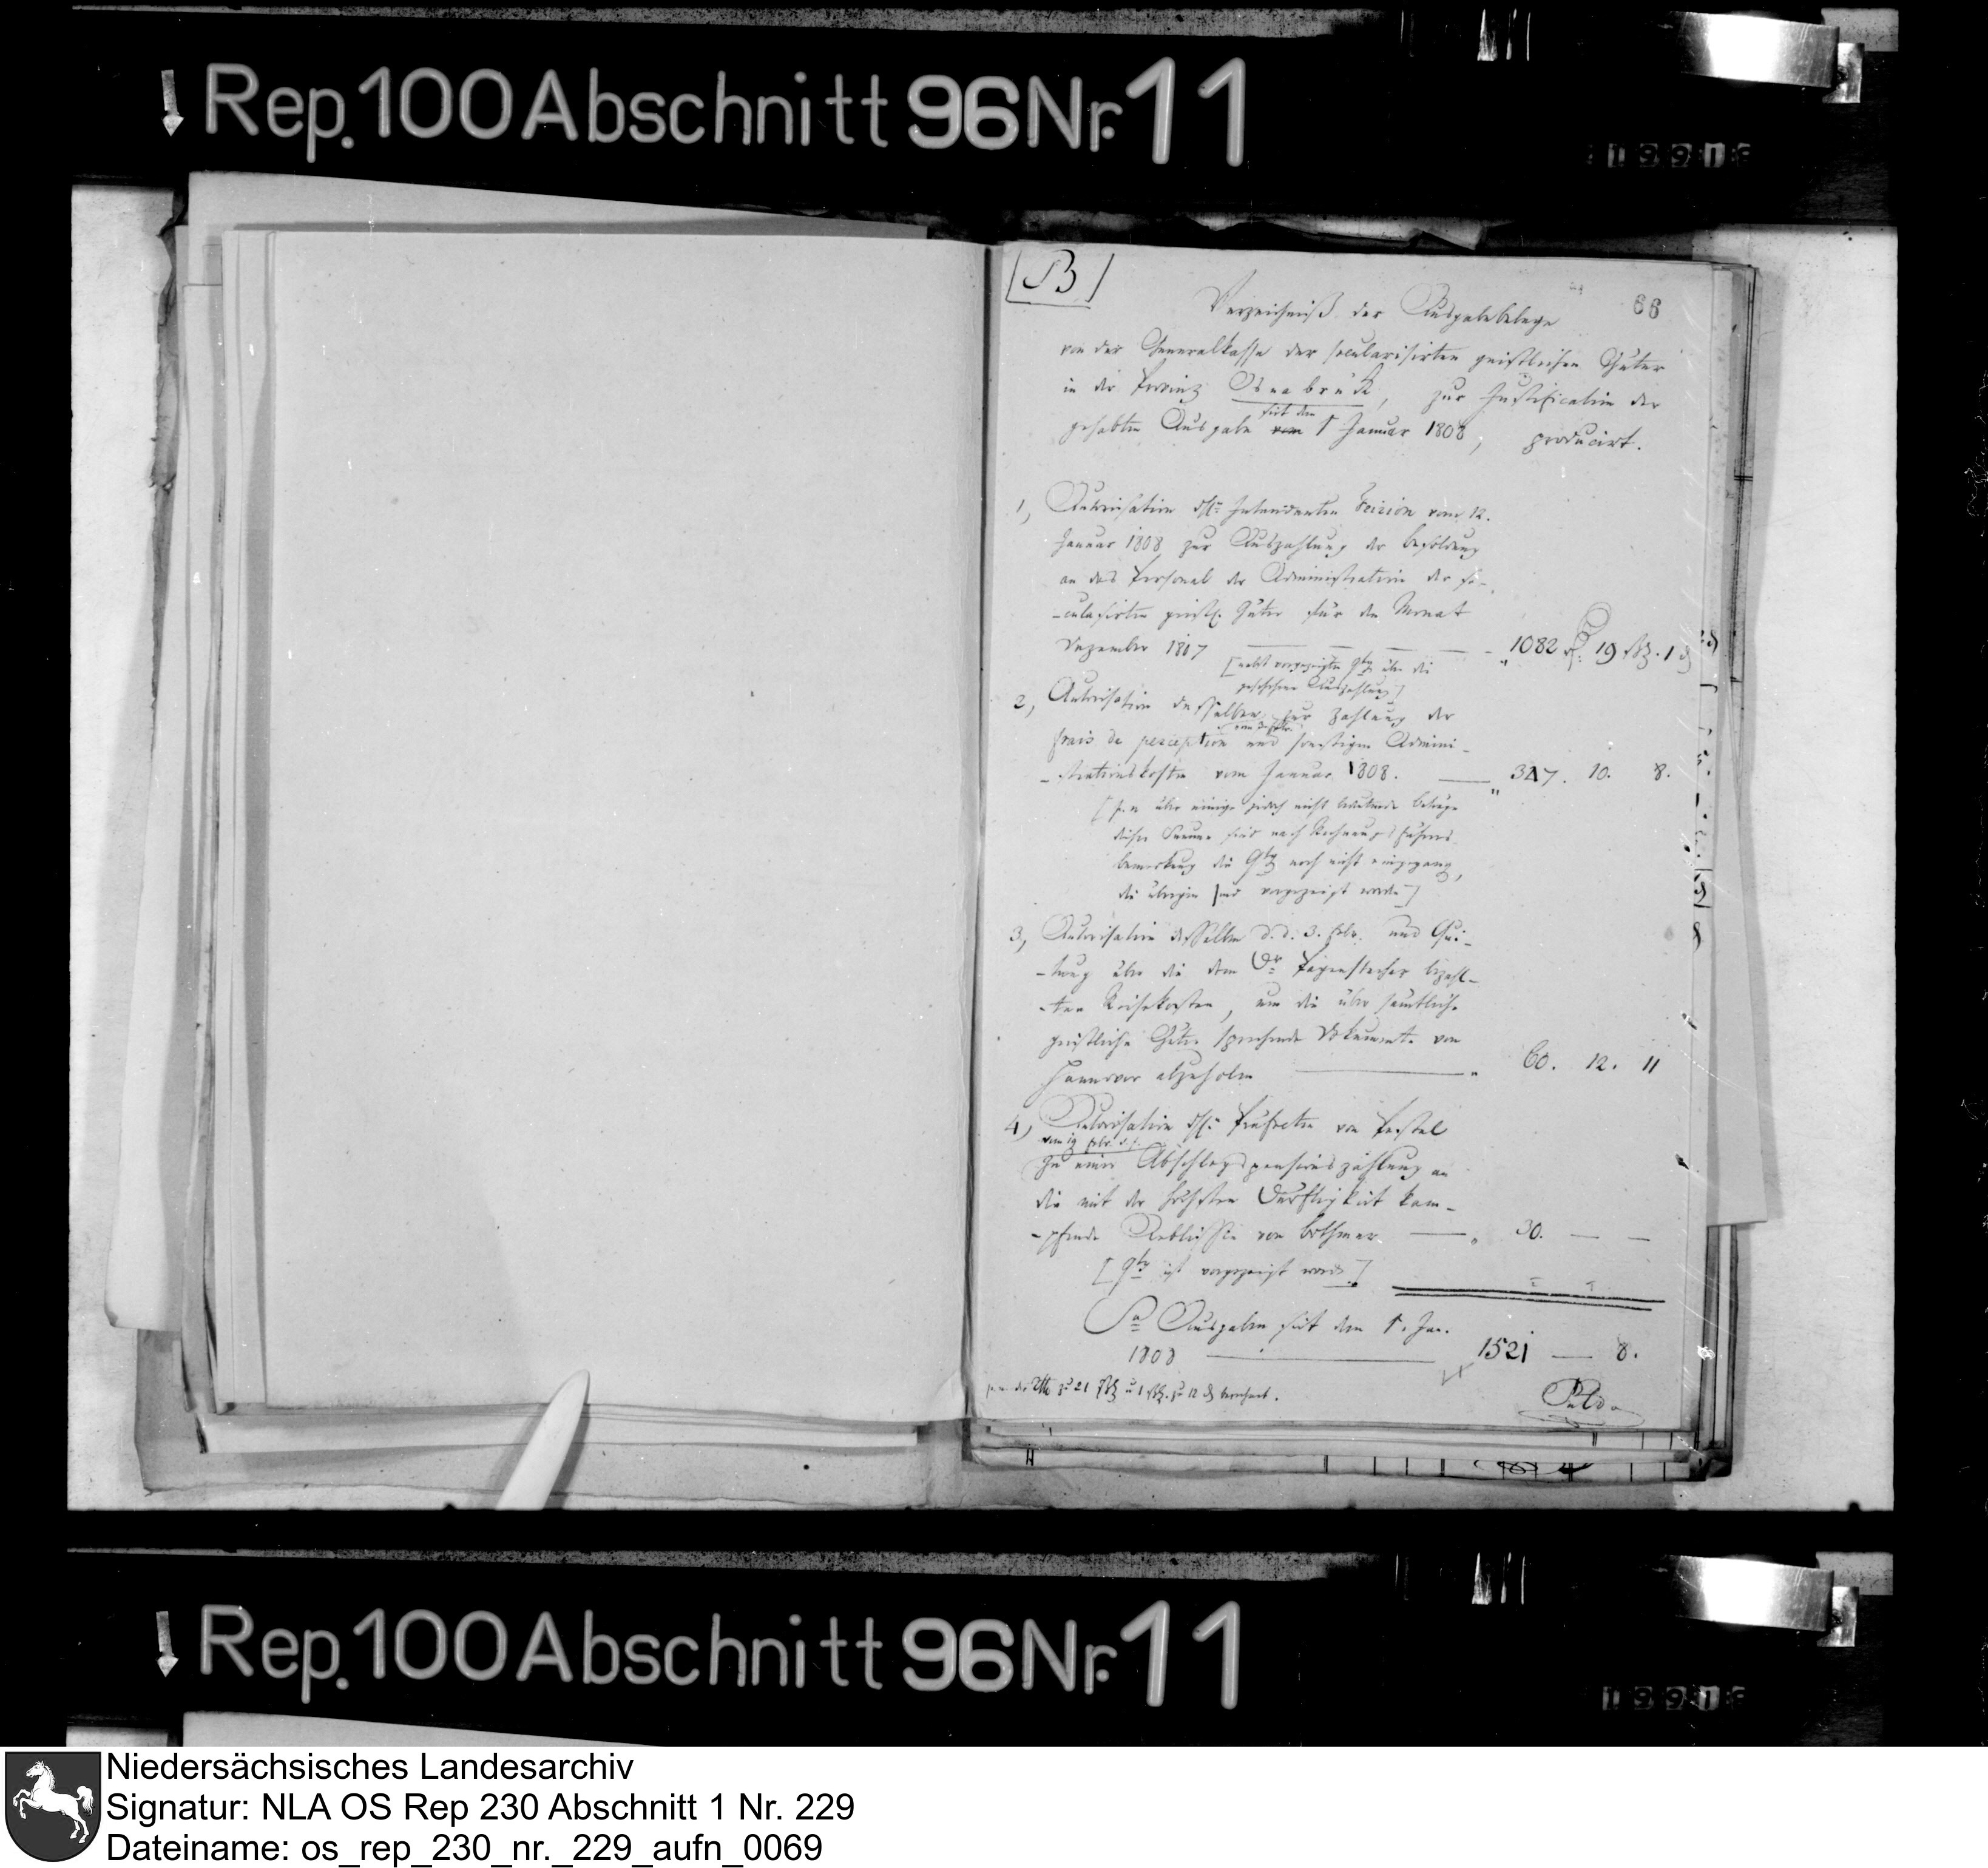 Rep. 100 Abschnitt 96 Nr. 11
1991
B
66
Verzeichniß der Ausgabebelege
von der Generalkasse der secularisirten geistlichen Güter
in der Provinz Osnabrück, zur Justification der
seit dem
gehabten Ausgabe vom 1 Januar 1808, producirt.
1, Autorisation des Intendanten vom 12.
Januar 1808 zur Auszahlung der Besoldung
an das Personal der Administration der se-
-cularisirten geistl. Güter für den Monat
Dezember 1807 — — — — — " 1082 19 ßl. 1 d
[nebst vorgezeigten über die
geschehene Auszahlung]
2, Autorisation desselben zur Zahlung der
frais de perception und sonstigen Admini-
-strationskosten vom Januar 1808. — " 347. 10. 8.
[ über einige jedoch nicht bedeutende Beträge
dieser Summe sind nach Rechnungsführers
bemerkung die noch nicht eingegang,
die übrigen sind vorgezeigt worden]
3, Autorisation desselben d. d. 3. Febr. und Qui-
-tung über die dem Dr Pagenstecher bezahl-
-ten Reisekosten, um die über sämtliche
geistliche Güter sprechende Dokumente von
Hannover abzuholen — " 60. 12. 11
4, Autorisation des Präfecten von Pestel
vom 19 Febr.
zu einer Abschlagspensionszahlung an
die mit der höchsten Dürftigkeit käm-
-pfende Aebtissin von Bothmer — " 30. — —
[ ist vorgezeigt worden]
Sa Ausgaben seit dem 1. Jan.
1808 — 1521 — 8.
zu 21 ßl u 1 ßl. zu 12 d berechnet.
Rep. 100 Abschnitt 96 Nr. 11
1991
Niedersächsisches Landesarchiv
Signatur: NLA OS Rep 230 Abschnitt 1 Nr. 229
Dateiname: os_rep_230_nr._229_aufn_0069